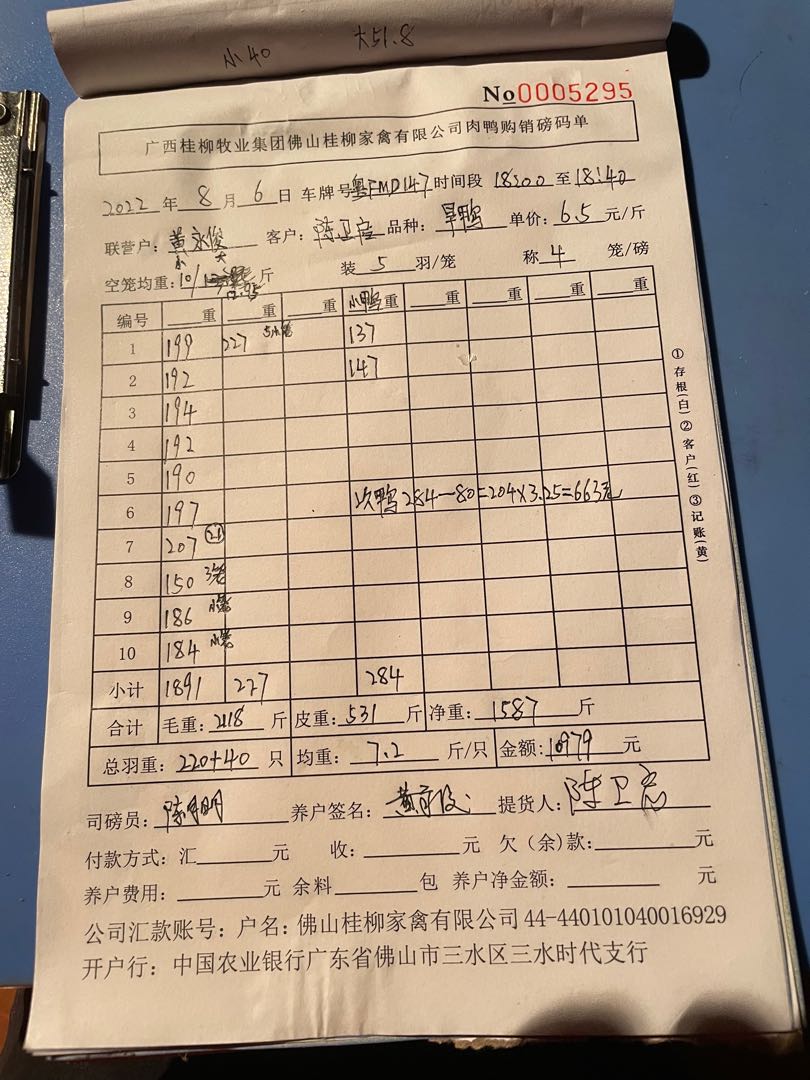 小40 大51.8
No0005295
广西桂柳牧业集团佛山桂柳家禽有限公司肉鸭购销磅码单
2022年 8月 6日 车牌号粤FMD147 时间段 18:00 至 18:40
联营户：黄永俊 客户：陈卫 品种：旱鸭 单价：6.5元/斤
小 大
空笼均重：10/ 12.95 斤 装 5 羽/笼 称 4 笼/磅
编号 重 重 重 小鸭重 重 重 重 重
1 199 227 137
2 192 147
3 194
4 192
5 190
6 197 次鸭 284-80=204×3.25=663元
7 207 21
8 150 3笼
9 186 小笼
10 184 小笼
小计 1891 227 284
合计 毛重：2118 斤 皮重：531 斤 净重：1587 斤
总羽重：220+40 只 均重：7.2 斤/只 金额：10979 元
司磅员：陈 明 养户签名：黄永俊 提货人：陈卫
付款方式：汇 元 收： 元 欠（余）款： 元
养户费用： 元 余料 包 养户净金额： 元
公司汇款账号：户名：佛山桂柳家禽有限公司 44-440101040016929
开户行：中国农业银行广东省佛山市三水区三水时代支行
①存根(白)②客户(红)③记账(黄)